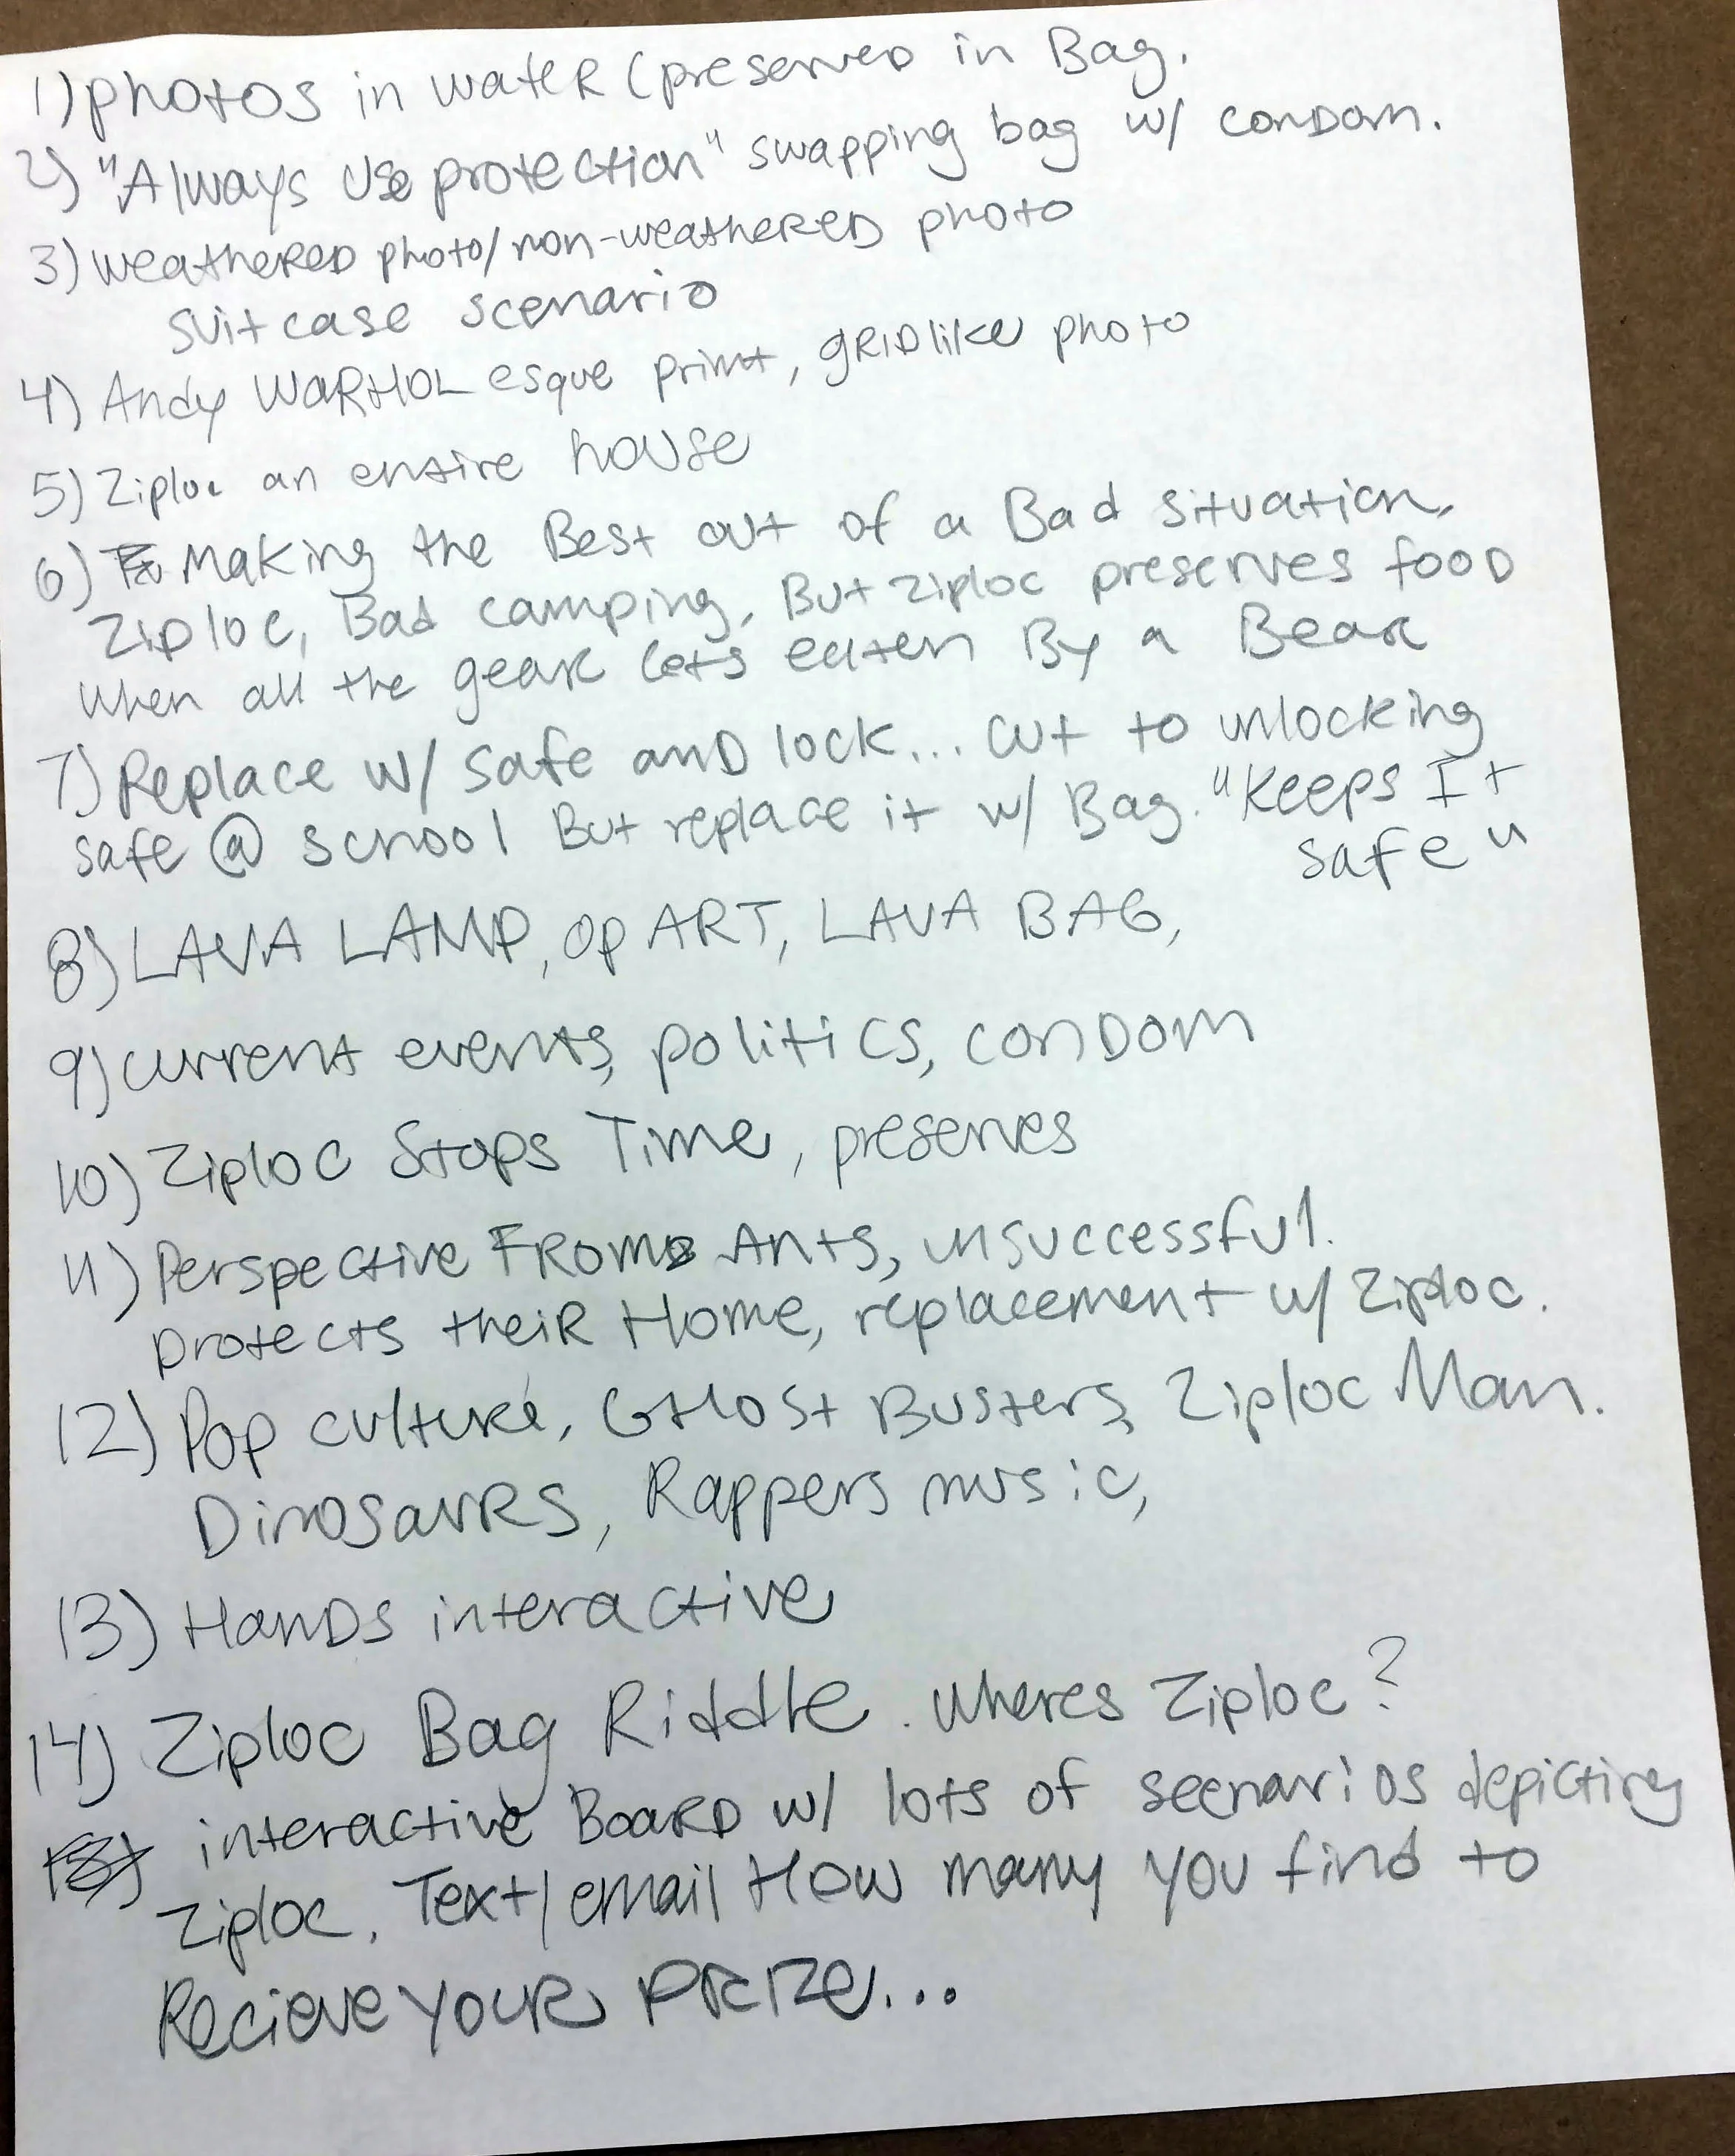 1) photos in water (preserved in Bag.
2) "Always Use protection" swapping bag w/ condom.
3) weathered photo/non-weathered photo
suitcase scenario
4) Andy WARHOL esque print, gridlike photo
5) Ziploc an entire house
6) Making the Best out of a Bad situation,
Ziploc, Bad camping, But ziploc preserves food
when all the gear gets eaten By a Bear
7) Replace w/ safe and lock... cut to unlocking
safe @ school But replace it w/ Bag. "Keeps It
safe"
8) LAVA LAMP, op ART, LAVA BAG,
9) current events, politics, condom
10) Ziploc Stops Time, preserves
11) Perspective FROM Ants, unsuccessful.
protects their Home, replacement w/ Ziploc.
12) Pop culture, GHost Busters, Ziploc Man.
Dinosaurs, Rappers music,
13) Hands interactive
14) Ziploc Bag Riddle. wheres Ziploc?
interactive Board w/ lots of scenarios depicting
Ziploc. Text/email How many you find to
Recieve your PRIZE...